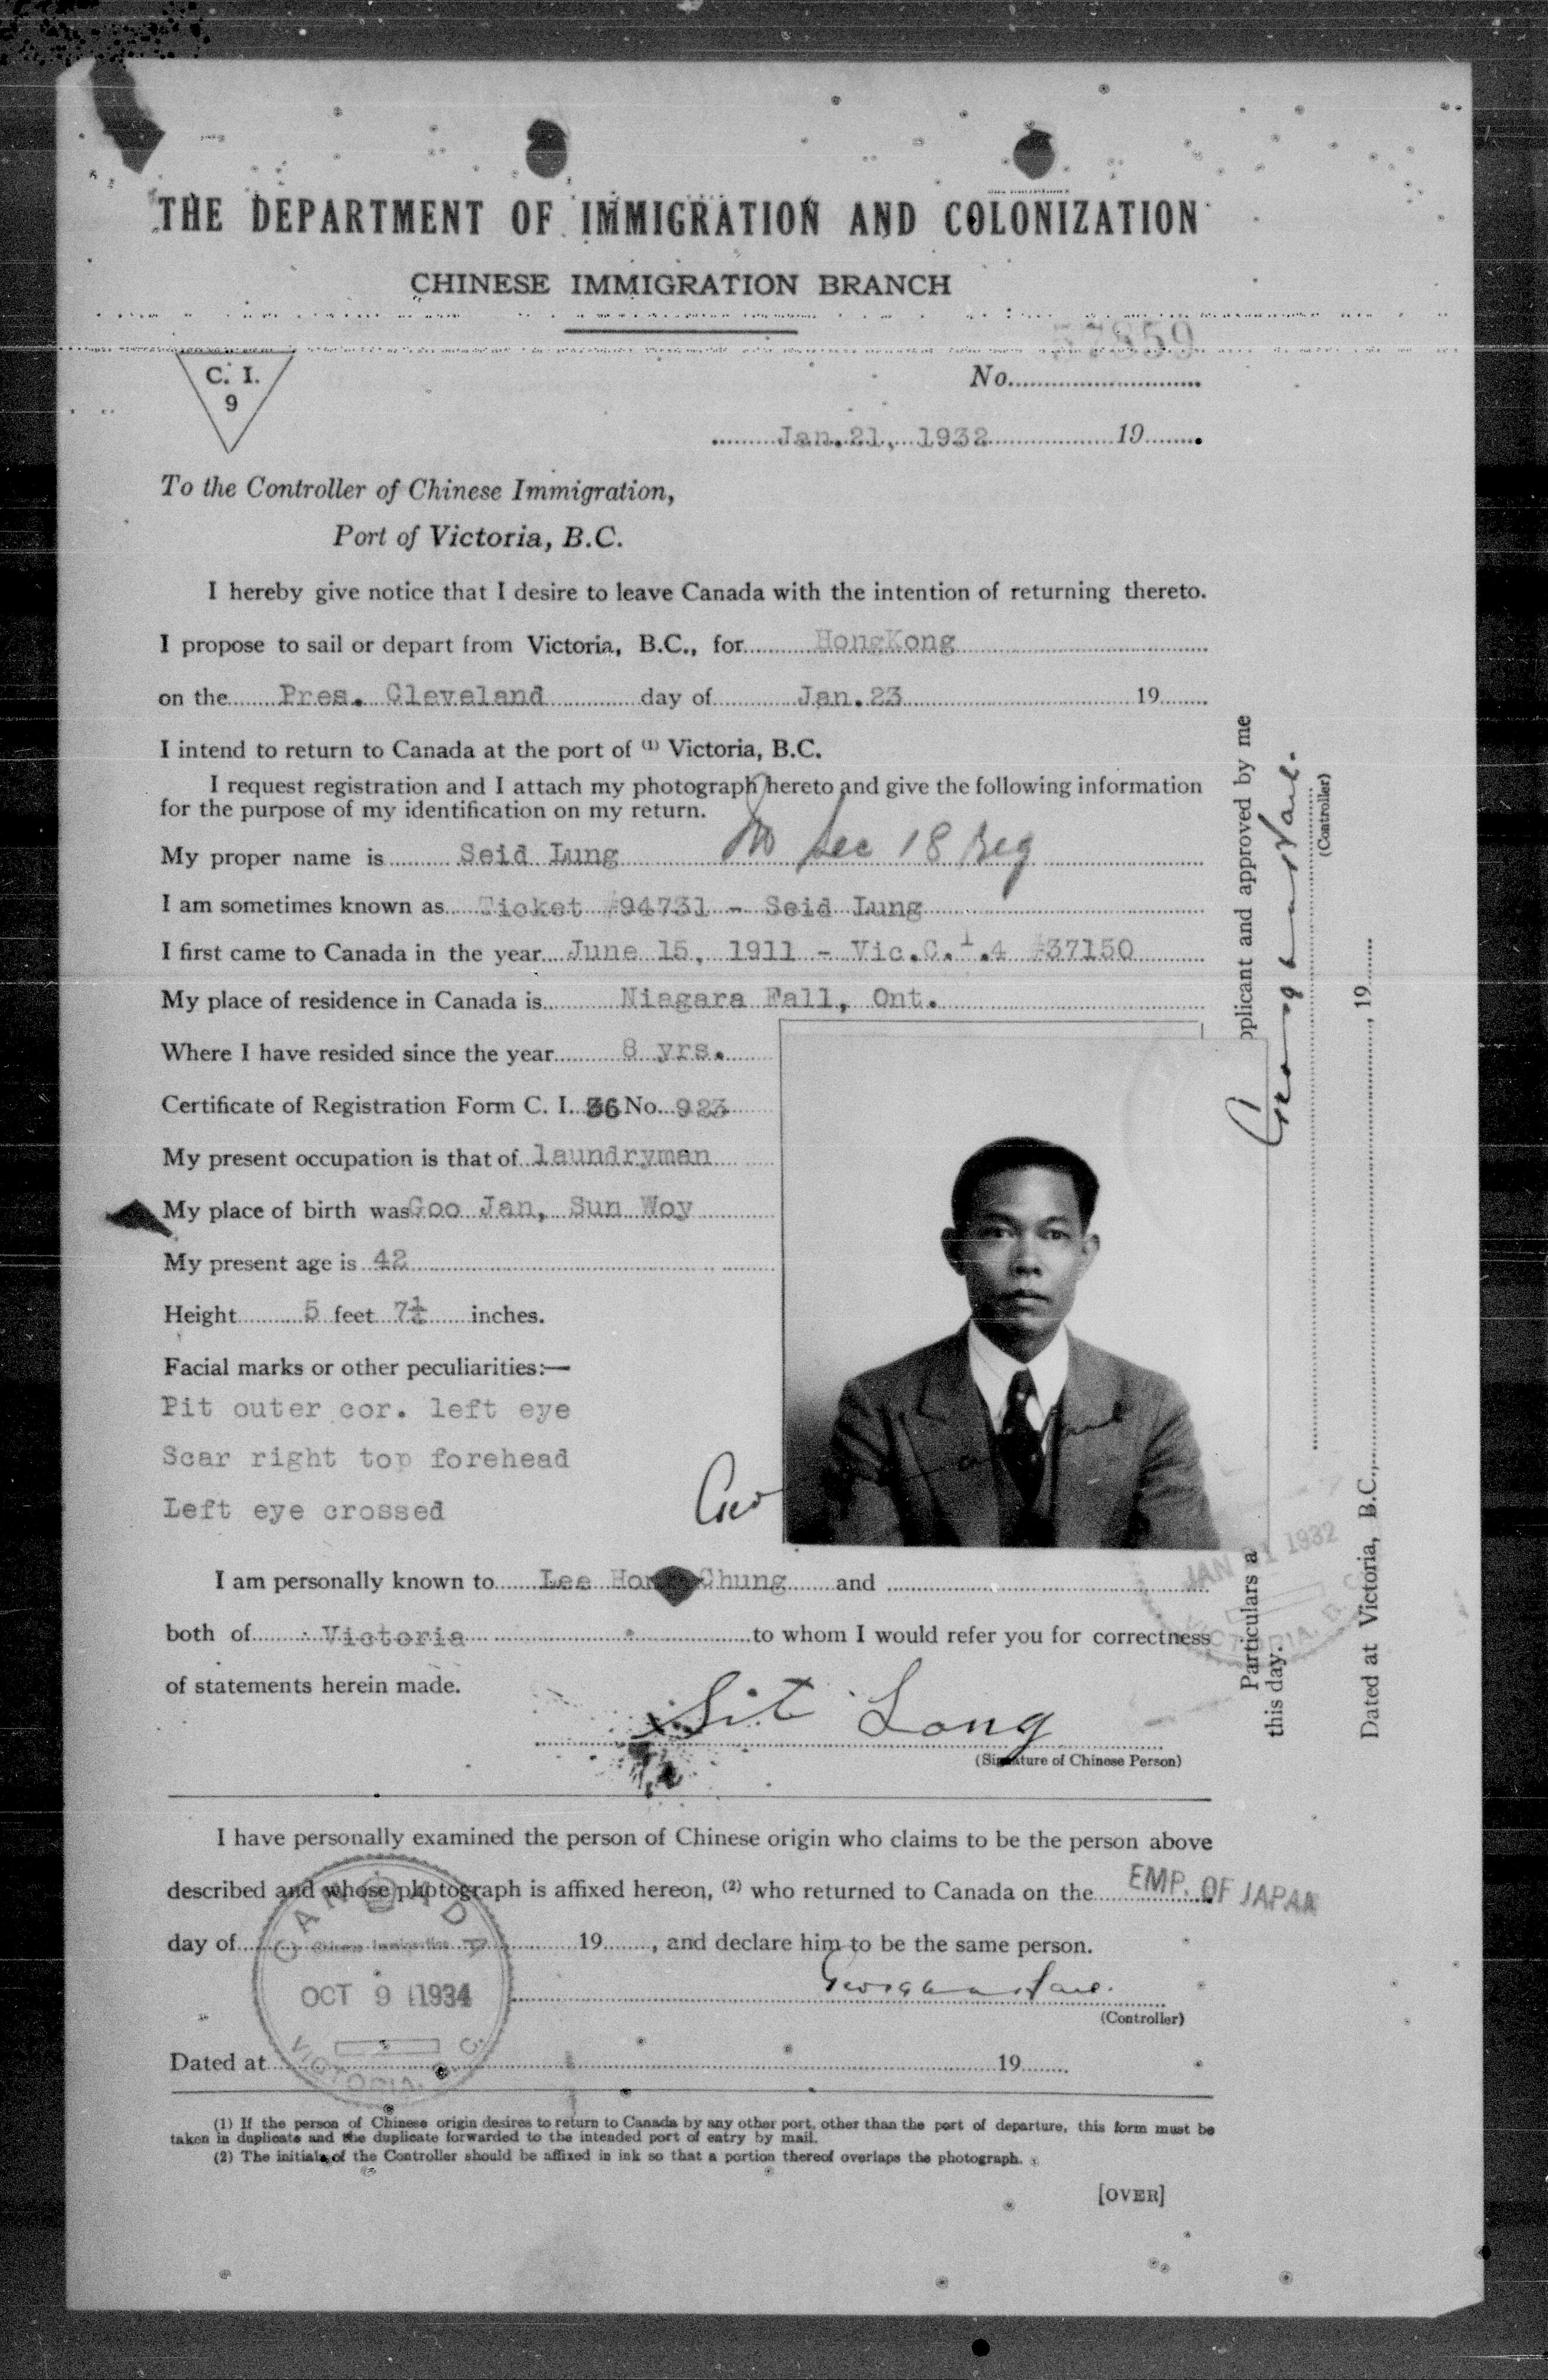 THE DEPARTMENT OF IMMIGRATION AND COLONIZATION
CHINESE IMMIGRATION BRANCH
C. I.
9
57859
No.
Jan. 21, 1932 19
To the Controller of Chinese Immigration,
Port of Victoria, B.C.
I hereby give notice that I desire to leave Canada with the intention of returning thereto.
I propose to sail or depart from Victoria, B.C., for HongKong
on the Pres. Cleveland day of Jan. 23 19
I intend to return to Canada at the port of (1) Victoria, B.C.
I request registration and I attach my photograph hereto and give the following information
for the purpose of my identification on my return.
My proper name is Seid Lung Sec 18 Reg
I am sometimes known as Ticket #94731 - Seid Lung
I first came to Canada in the year June 15, 1911 - Vic.C.I.4 #37150
My place of residence in Canada is Niagara Fall, Ont.
Where I have resided since the year 8 yrs.
Certificate of Registration Form C. I. 36 No. 923
My present occupation is that of laundryman
My place of birth was Goo Jan, Sun Woy
My present age is 42
Height 5 feet 7½ inches.
Facial marks or other peculiarities:—
Pit outer cor. left eye
Scar right top forehead
Left eye crossed
I am personally known to Lee Hong Chung and
both of Victoria to whom I would refer you for correctness
of statements herein made.
Sit Long
(Signature of Chinese Person)
I have personally examined the person of Chinese origin who claims to be the person above
described and whose photograph is affixed hereon, (2) who returned to Canada on the EMP. OF JAPAN
day of 19, and declare him to be the same person.
(Controller)
Dated at 19
CANADA
Chinese Immigration
OCT 9 1934
VICTORIA, B.C.
(1) If the person of Chinese origin desires to return to Canada by any other port, other than the port of departure, this form must be
taken in duplicate and the duplicate forwarded to the intended port of entry by mail.
(2) The initials of the Controller should be affixed in ink so that a portion thereof overlaps the photograph.
[OVER]
Particulars a
pplicant and approved by me
this day.
(Controller)
Dated at Victoria, B.C., 19
JAN 21 1932
VICTORIA, B.C.